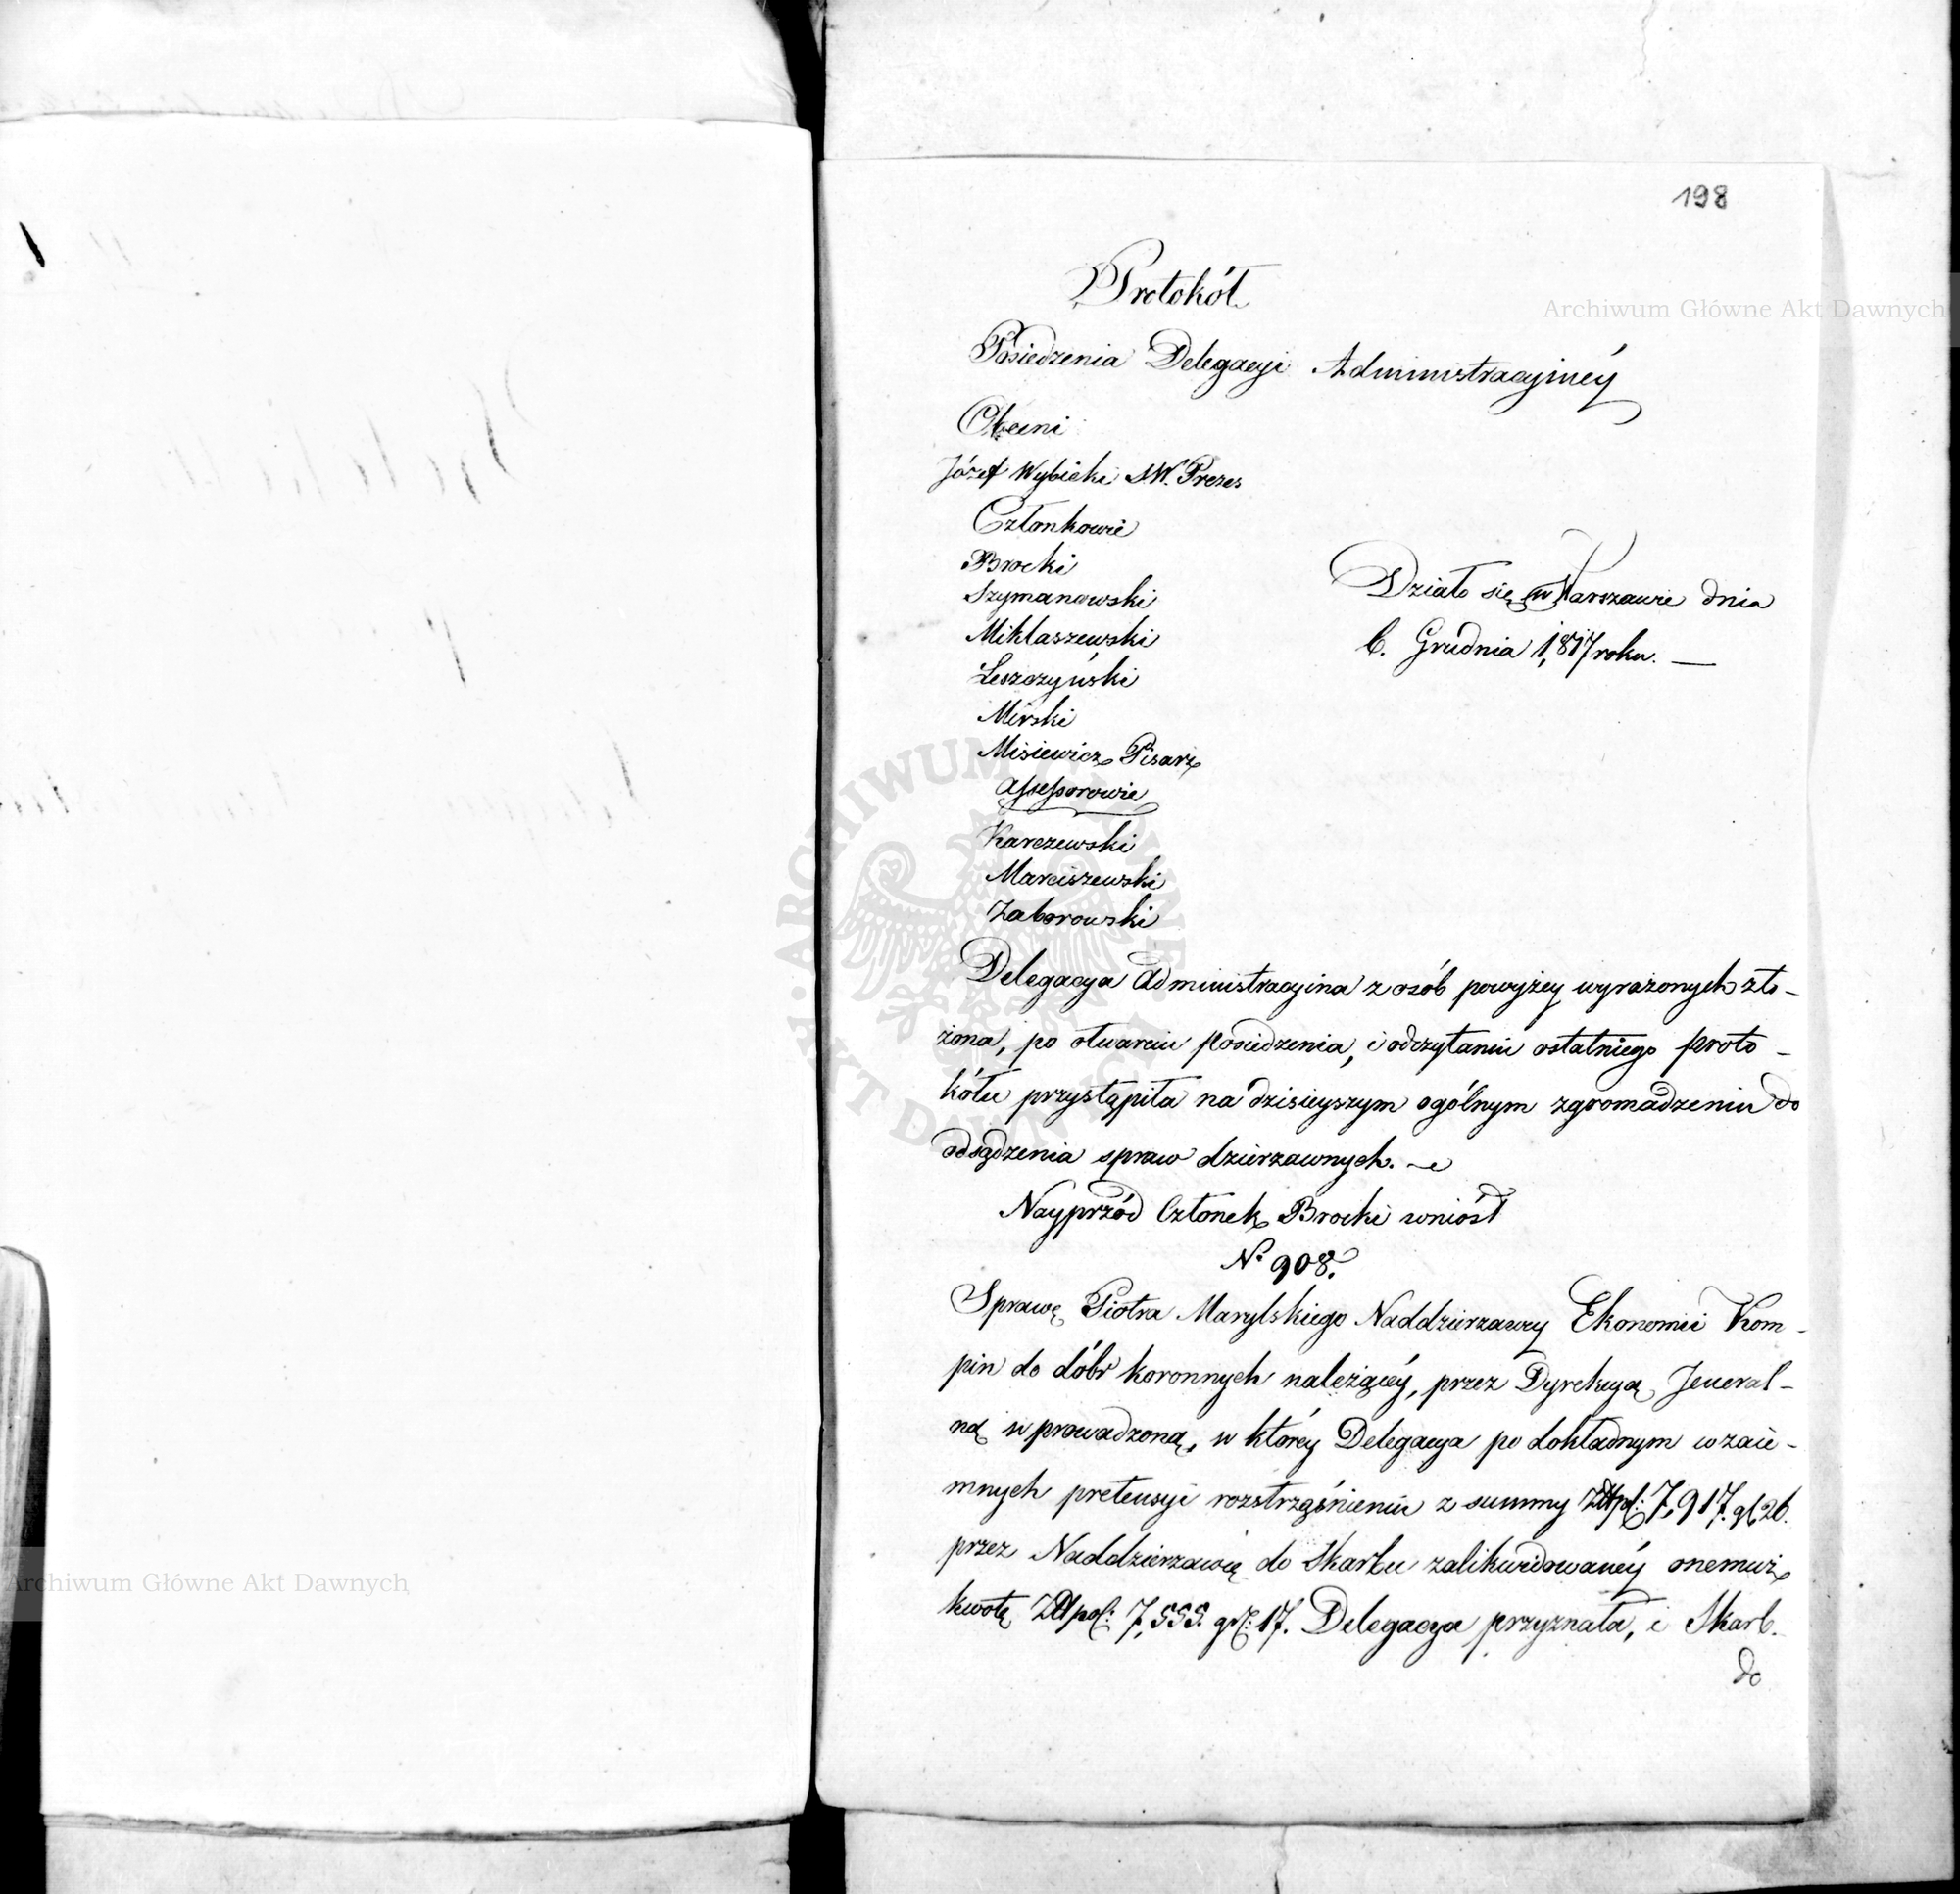 198
Protokół
Posiedzenia Delegacyi Administracyinéy
Obecni
Józef Wybicki S.W. Prezes
Członkowie
Brocki
Szymanowski
Miklaszewski
Leszczyński
Mirski
Misiewicz Pisarz
Assessorowie
Karczewski
Marciszewski
Zaborowski
Działo się w Warszawie dnia
6. Grudnia 1,817 roku. —
Delegacya Administracyina z osób powyżey wyrażonych zło-
żona, po otwarciu posiedzenia, i odczytaniu ostatniego proto-
kółu przystąpiła na dzisieyszym ogólnym zgromadzeniu do
odsądzenia spraw dzierzawnych.
Nayprzód Członek Brocki wniósł
No 908.
Sprawę Piotra Marylskiego Naddzierzawcy Ekonomii Kom-
pin do dóbr koronnych należącéy, przez Dyrekcyą Jeneral-
ną wprowadzoną, w którey Delegacya po dokładnym wzaie-
mnych pretensyi rozstrząśnieniu z summy Złtpol: 7,917. gr 26.
przez Naddzierzawcę do Skarbu zalikwidowanéy onemuż
kwotę Złtpol: 7,555. gr: 17. Delegacya przyznała, i Skarb
do
Archiwum Główne Akt Dawnych
Archiwum Główne Akt Dawnych
ARCHIWUM GŁÓWNE AKT DAWNYCH